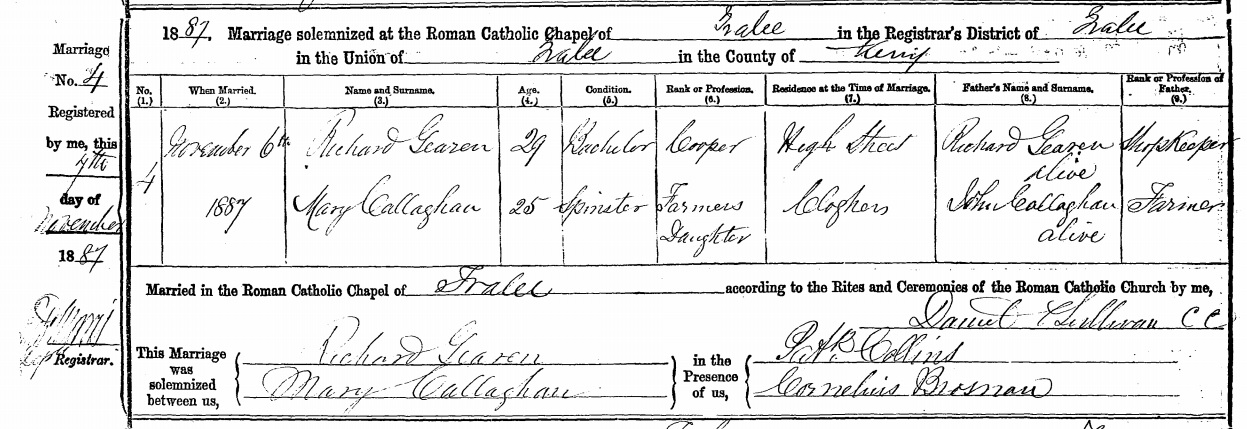 1887. Marriage solemnized at the Roman Catholic Chapel of Tralee in the Registrar's District of Tralee
in the Union of Tralee in the County of Kerry
Marriage
No. 4
Registered
by me, this
7th
day of
November
1887
Registrar.
No. (1.) When Married. (2.) Name and Surname. (3.) Age. (4.) Condition. (5.) Rank or Profession. (6.) Residence at the Time of Marriage. (7.) Father's Name and Surname. (8.) Rank or Profession of Father. (9.)
4 November 6th Richard Gearen 29 Bachelor Cooper High Street Richard Gearen Shopkeeper
alive
1887 Mary Callaghan 25 Spinster Farmers Cloghers John Callaghan Farmer
Daughter alive
Married in the Roman Catholic Chapel of Tralee according to the Rites and Ceremonies of the Roman Catholic Church by me,
Daniel O'Sullivan C C
This Marriage was solemnized between us,
Richard Gearen
Mary Callaghan
in the Presence of us,
Patk Collins
Cornelius Brosnan